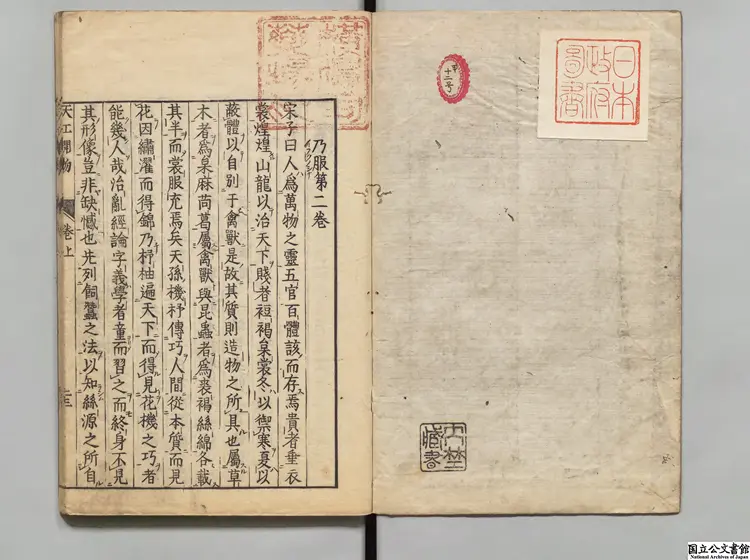 日本
政府
圖書
十二号
乃服第二卷
宋子曰人爲萬物之靈五官百體該而存焉貴者垂衣
裳煌煌山龍以治天下賤者裋褐枲裳冬以禦寒夏以
蔽體以自別于禽獸是故其質則造物之所具也屬草
木者爲枲麻苘葛屬禽獸與昆蟲者爲裘褐絲綿各載
其半而裳服充焉矣天孫機杼傳巧人間從本質而見
花因繡濯而得錦乃杼柚遍天下而得見花機之巧者
能幾人哉治亂經綸字義學者童而習之而終身不見
其形像豈非缺憾也先列飼蠶之法以知絲源之所自
天工開物
卷上
國立公文書館
National Archives of Japan